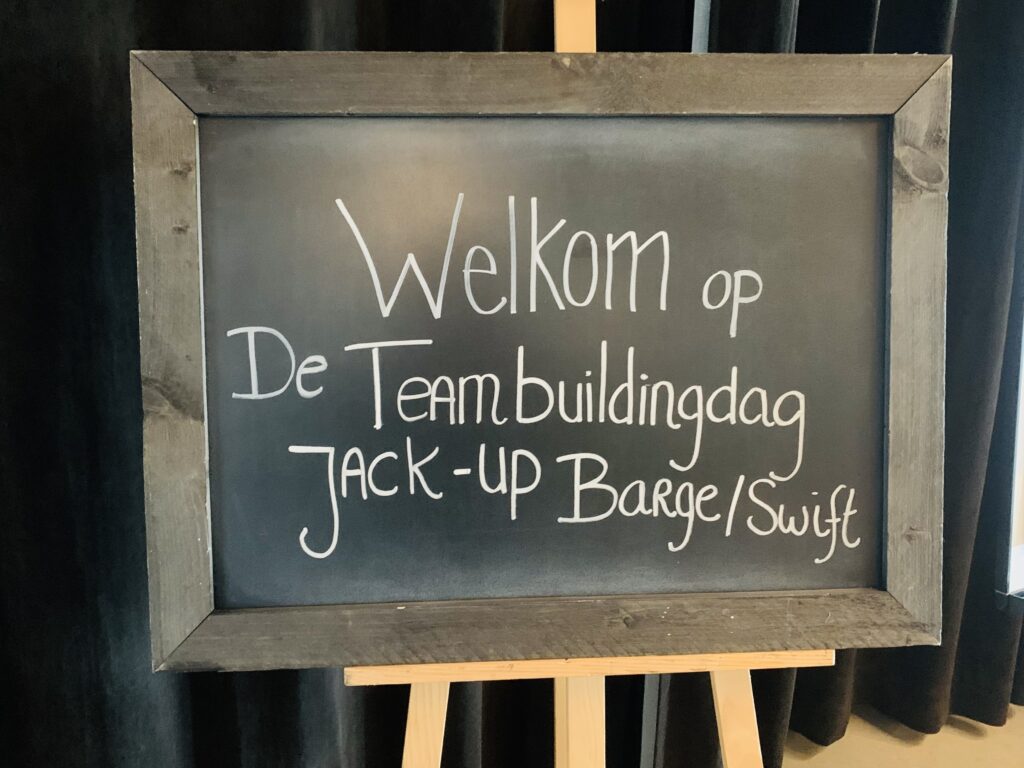 Welkom op
De Teambuildingdag
Jack-up Barge/Swift